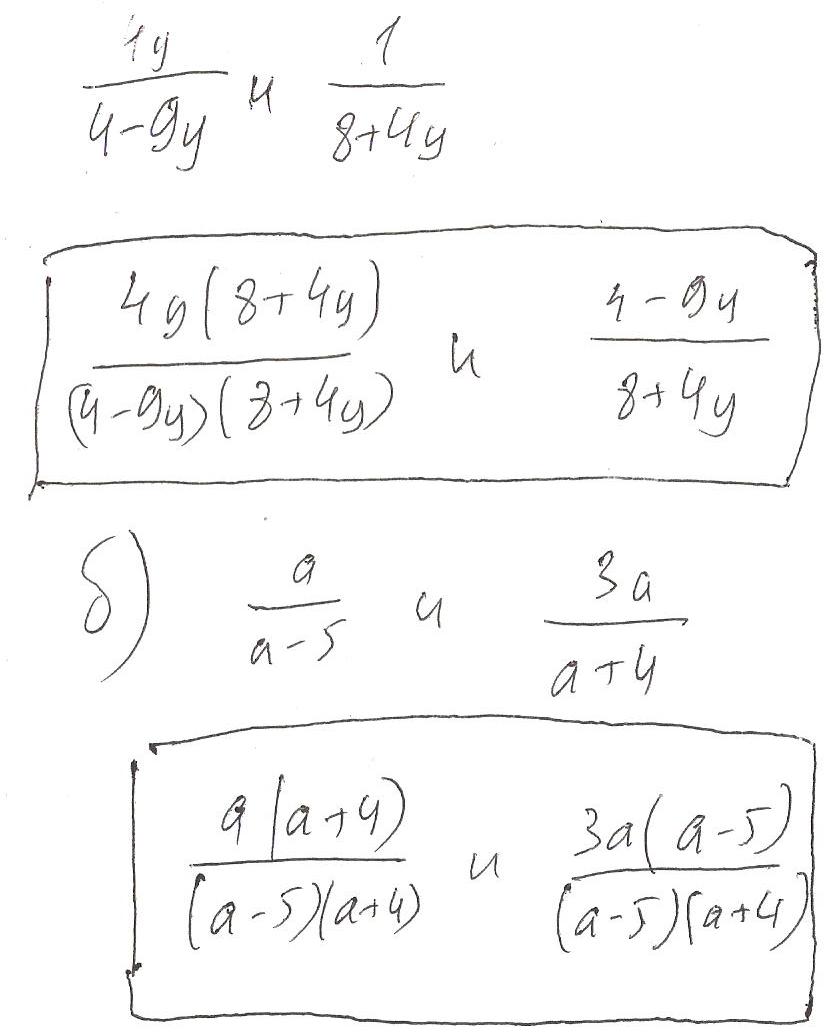 4y/(4-9y) и 1/(8+4y)
4y(8+4y)/((4-9y)(8+4y)) и (4-9y)/(8+4y)
б) a/(a-5) и 3a/(a+4)
a(a+4)/((a-5)(a+4)) и 3a(a-5)/((a-5)(a+4))